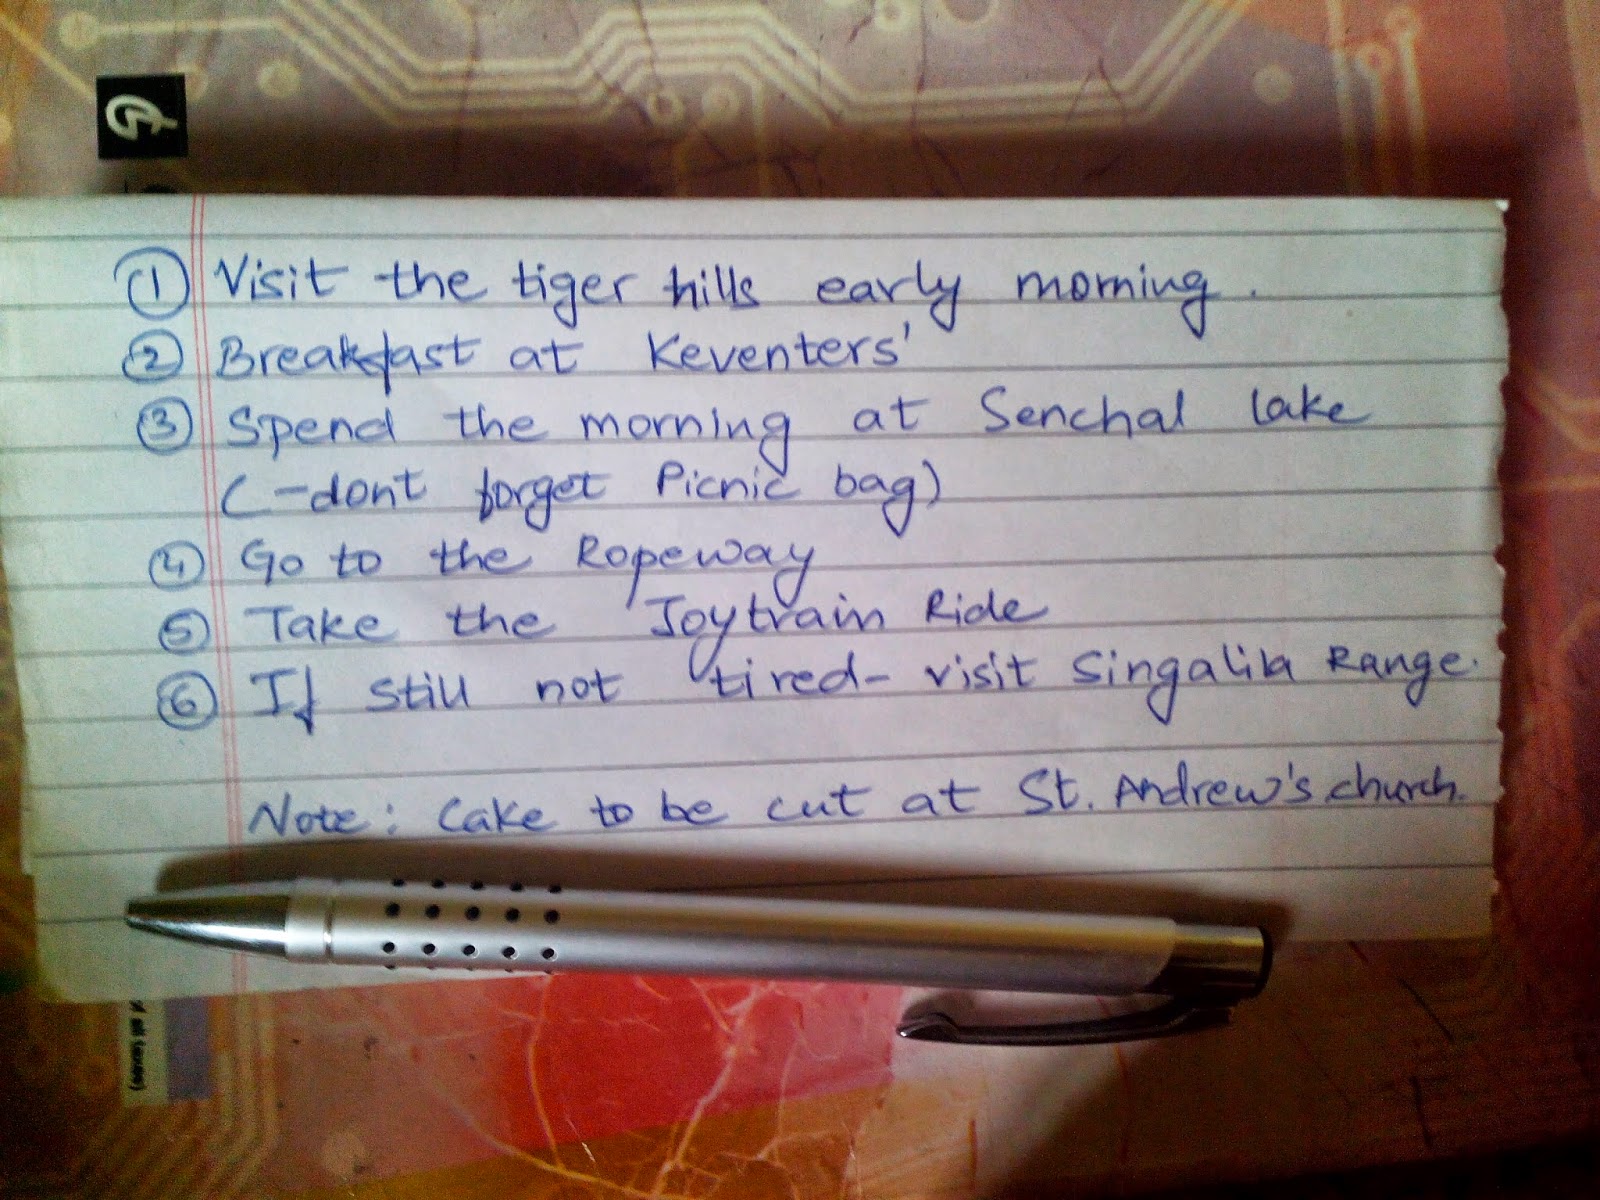 ① Visit the tiger hills early morning.
② Breakfast at Keventers'
③ Spend the morning at Senchal lake
(-dont forget Picnic bag)
④ Go to the Ropeway
⑤ Take the Joytrain Ride
⑥ If still not tired- visit Singalila Range.
Note: Cake to be cut at St. Andrew's church.
of all taxes)